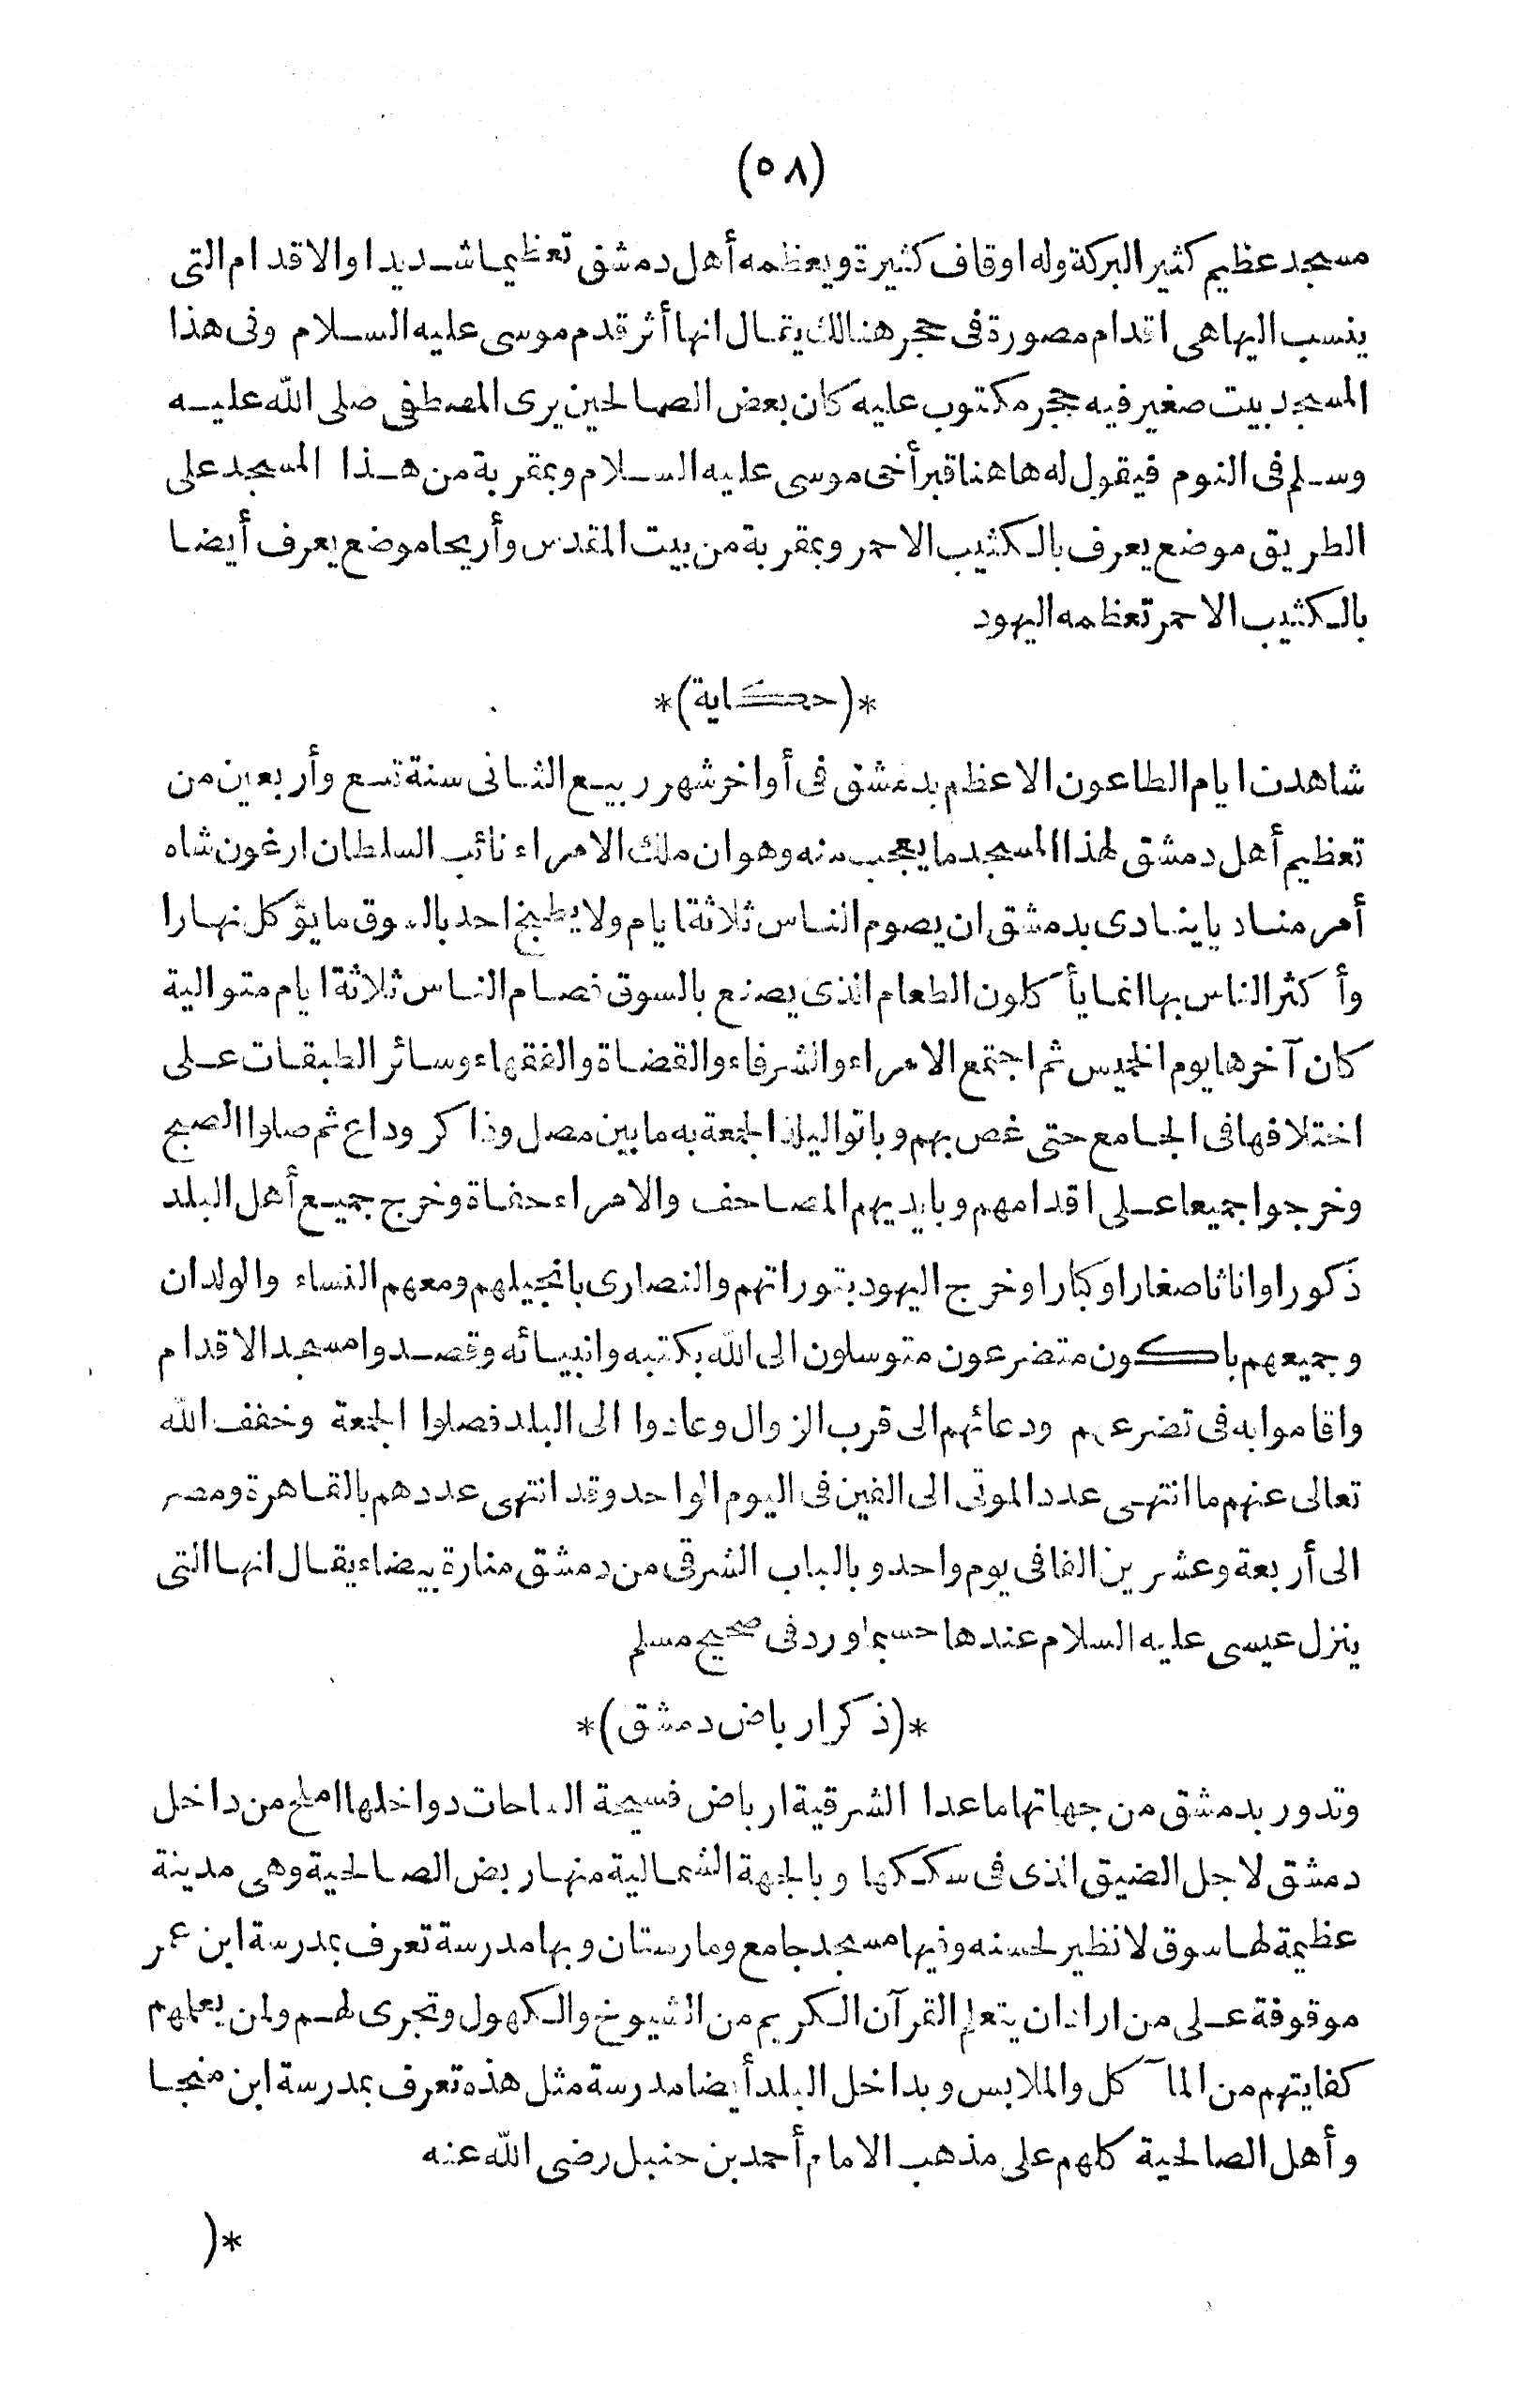 (٥٨)
مسجد عظيم كثير البركة وله اوقاف كثيرة ويعظمه أهل دمشق تعظيما شديدا والاقدام التى
ينسب اليها هى اقدام مصورة فى حجر هنالك يقال انها أثر قدم موسى عليه السلام وفى هذا
المسجد بيت صغير فيه حجر مكتوب عليه كان بعض الصالحين يرى المصطفى صلى الله عليه
وسلم فى النوم فيقول له هاهنا قبر أخى موسى عليه السلام وبمقربة من هذا المسجد على
الطريق موضع يعرف بالكثيب الاحمر وبمقربة من بيت المقدس وأريحا موضع يعرف أيضا
بالكثيب الاحمر تعظمه اليهود
*(حكاية)*
شاهدت ايام الطاعون الاعظم بدمشق فى أواخر شهر ربيع الثانى سنة تسع وأربعين من
تعظيم أهل دمشق لهذا المسجد ما يعجب منه وهو ان ملك الامراء نائب السلطان ارغون شاه
أمر مناديا ينادى بدمشق ان يصوم الناس ثلاثة ايام ولا يطبخ احد بالسوق ما يؤكل نهارا
وأكثر الناس بها انما يأكلون الطعام الذى يصنع بالسوق فصام الناس ثلاثة ايام متوالية
كان آخرها يوم الخميس ثم اجتمع الامراء والشرفاء والقضاة والفقهاء وسائر الطبقات على
اختلافها فى الجامع حتى غص بهم وباتوا ليلة الجمعة به ما بين مصل وذاكر وداع ثم صلوا الصبح
وخرجوا جميعا على اقدامهم وبايديهم المصاحف والامراء حفاة وخرج جميع أهل البلد
ذكورا واناثا صغارا وكبارا وخرج اليهود بتوراتهم والنصارى بانجيلهم ومعهم النساء والولدان
وجميعهم باكون متضرعون متوسلون الى الله بكتبه وانبيائه وقصدوا مسجد الاقدام
واقاموا به فى تضرعهم ودعائهم الى قرب الزوال وعادوا الى البلد فصلوا الجمعة وخفف الله
تعالى عنهم ما انتهى عدد الموتى الى الفين فى اليوم الواحد وقد انتهى عددهم بالقاهرة ومصر
الى أربعة وعشرين الفا فى يوم واحد وبالباب الشرقى من دمشق منارة بيضاء يقال انها التى
ينزل عيسى عليه السلام عندها حسبما ورد فى صحيح مسلم
*(ذكر ارباض دمشق)*
وتدور بدمشق من جهاتها ما عدا الشرقية ارباض فسيحة الساحات دواخلها املح من داخل
دمشق لاجل الضيق الذى فى سككها وبالجهة الشمالية منها ربض الصالحية وهى مدينة
عظيمة لها سوق لا نظير لحسنه وفيها مسجد جامع ومارستان وبها مدرسة تعرف بمدرسة ابن عمر
موقوفة على من اراد ان يتعلم القرآن الكريم من الشيوخ والكهول وتجرى لهم ولمن يعلمهم
كفايتهم من المآكل والملابس وبداخل البلد أيضا مدرسة مثل هذه تعرف بمدرسة ابن منجا
وأهل الصالحية كلهم على مذهب الامام أحمد بن حنبل رضى الله عنه
*(